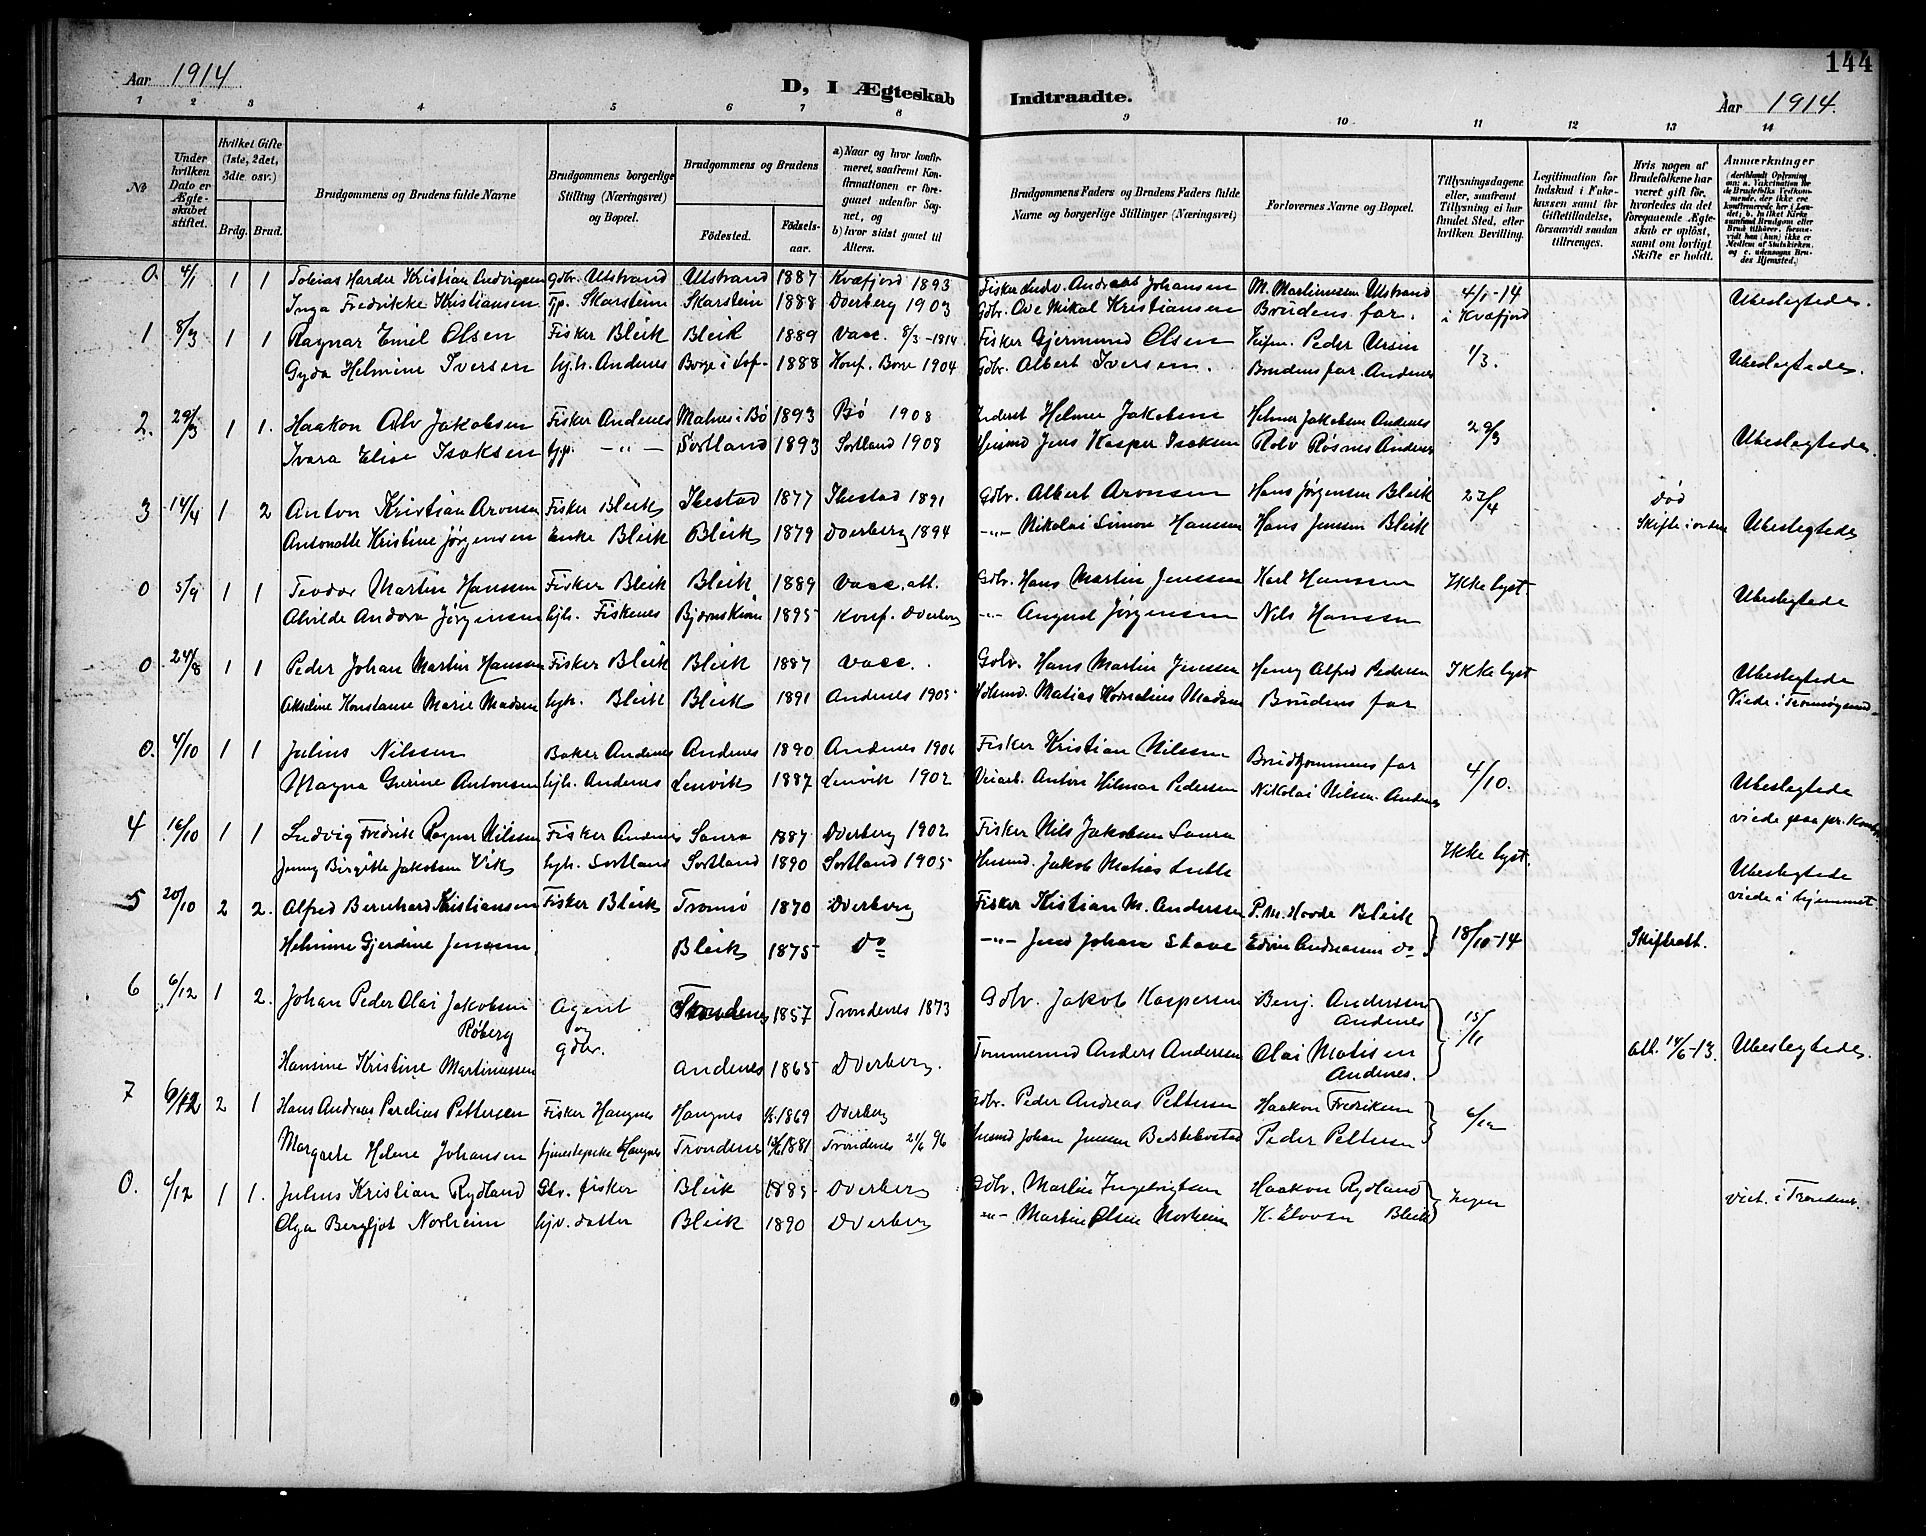 144
Aar 1914
D, I Ægteskab Indtraadte.
Aar 1914.
1 2 3 4 5 6 7 8 9 10 11 12 13 14
№
Under hvilken Dato er Ægteskabet stiftet.
Hvilket Gifte (1ste, 2det, 3die osv.)
Brdg. Brud.
Brudgommens og Brudens fulde Navne
Brudgommens borgerlige Stilling (Næringsvei) og Bopæl.
Brudgommens og Brudens
Födested. Födselsaar.
a) Naar og hvor konfirmeret, saafremt Konfirmationen er foregaaet udenfor Sognet, og
b) hvor sidst gaaet til Alters.
Brudgommens Faders og Brudens Faders fulde Navne og borgerlige Stillinger (Næringsvei)
Forlovernes Navne og Bopæl.
Tillysningsdagene eller, saafremt Tillysning ei har fundet Sted, efter hvilken Bevilling.
Legitimation for Indskud i Enkekassen samt for Giftetilladelse, forsaavidt saadan tiltrænges.
Hvis nogen af Brudefolkene har været gift før, hvorledes da det foregaaende Ægteskab er opløst, samt om lovligt Skifte er holdt.
Anmærkninger
0. 4/1 1 1 Tobias Harder Kristian Ludvigsen gdbr. Utstrand Utstrand 1887 Kvæfjord 1893 Fisker Ludv. Andreas Johansen M. Martinussen Utstrand 4/1-14 Ubeslegtede.
Inga Fredrikke Kristiansen Tp. Skarstein Skarstein 1888 Dverberg 1903 Gdbr. Ove Mikal Kristiansen Brudens far. i Kvæfjord
1 8/3 1 1 Ragnar Emil Olsen Fisker Bleik Bleik 1889 Vacc. 8/3-1814. Fisker Gjermund Olsen Peder Ursin 1/3. Ubeslegtede.
Gyda Helmine Iversen hjh. Andenes Borge i Lof. 1888 Konf. Borge 1904 Gdbr. Albert Iversen. Brudens far. Andenes
2. 29/3 1 1. Haakon Alv Jakobsen Fisker Andenes Malnes i Bø 1893 Bø 1908 Inderst Helmer Jakobsen Helmer Jakobsen Andenes 29/3 Ubeslegtede.
Ivara Elise Isaksen tjp. —"— Sortland 1893 Sortland 1908 Husmd Jens Kasper Isaksen Rolv Røsnes Andenes
3 14/4 1 2 Anton Kristian Aronsen Fisker Bleik Ibestad 1877 Ibestad 1891 Gdbr. Albert Aronsen Hans Jørgensen Bleik 27/4 Død
Antonette Kristine Jørgensen Enke Bleik Bleik 1879 Dverberg 1894 —"— Nikolai Simon Hansen Hans Jensen Bleik Skifte i orden Ubeslegtede
0 5/9 1 1 Teodor Martin Hanssen Fisker Bleik Bleik 1889 Vacc. att. Gdbr. Hans Martin Jenssen Karl Hanssen Ikke lyst Ubeslegtede
Alvilde Andora Jørgensen hjh. Fiskenes Bjørnskinn 1895 Konf. Dverberg —"— August Jørgensen Nils Hanssen
0 24/8 1 1 Peder Johan Martin Hansen Fisker Bleik Bleik 1887 Vacc. Gdbr. Hans Martin Jenssen Henry Alfred Pedersen Ikke lyst Ubeslegtede
Akseline Konstanse Marie Madsen hjh. Bleik Bleik 1891 Andenes 1905 Matias Kornelius Madsen Brudens far Viede i Tromsøsund
0. 4/10 1 1 Julius Nilssen Baker Andenes Andenes 1890 Andenes 1906 Fisker Kristian Nilssen Brudgommens far 4/10. Ubeslegtede
Magna Gurine Antonsen hjh. Andenes Lenvik 1887 Lenvik 1902 Veiarb. Anton Hilmar Pedersen Nikolai Nilsen Andenes
4 16/10 1 1 Ludvig Fredrik Ragnar Nilssen Fisker Andenes Saura 1887 Dverberg 1902 Fisker Nils Jakobsen Saura Ikke lyst. viede paa pr. Kontor
Jenny Birgitte Jakobsen Vik hjh. Sortland Sortland 1890 Sortland 1905 Husmd. Jakob Matias Ubeslegtede
5 20/10 2 2. Alfred Bernhard Kristiansen Fisker Bleik Tromsø 1870 Dverberg Fisker Kistian M. Andersen P. M. Hovde Bleik 18/10-14 viede i hjemmet.
Helmine Gjerdine Jensen, Bleik 1875 Do —"— Jens Johan Stave Edvin Andreassen do Skifteatt.
6 6/12 1 2. Johan Peder Olai Jakobsen Røberg Agent og gdbr. Trondenes 1857 Trondenes 1873 Gdbr. Jakob Kaspersen Benj. Anderssen Andenes 15/11
Hansine Kristine Martinussen Andenes 1865 Dverberg. Tømmermd Anders Andersen Olai Matisen Andenes. att. 14/6-13. Ubeslegtede.
7 6/12 2 1 Hans Andreas Parelius Pettersen Fisker Haugnes Haugnes 1869 Dverberg Gdbr. Peder Andreas Pettersen Haakon Fredriksen 6/12
Margrete Helene Johansen tjenestepike Haugnes Trondenes 1881 Trondenes 21/6 96 Husmd Johan Jenssen Peder Pettersen
0. 6/12 1 1. Julius Kristian Rydland Gbr. fisker Bleik 1885 Dverberg Gdbr. Martin Ingebrigtsen Haakon Rydland Ingen viet. i Trondenes
Olga Bergljot Norheim hjv. datter Bleik 1890 Dverberg —"— Martin Olsen Norheim K. Elvosen Bleik